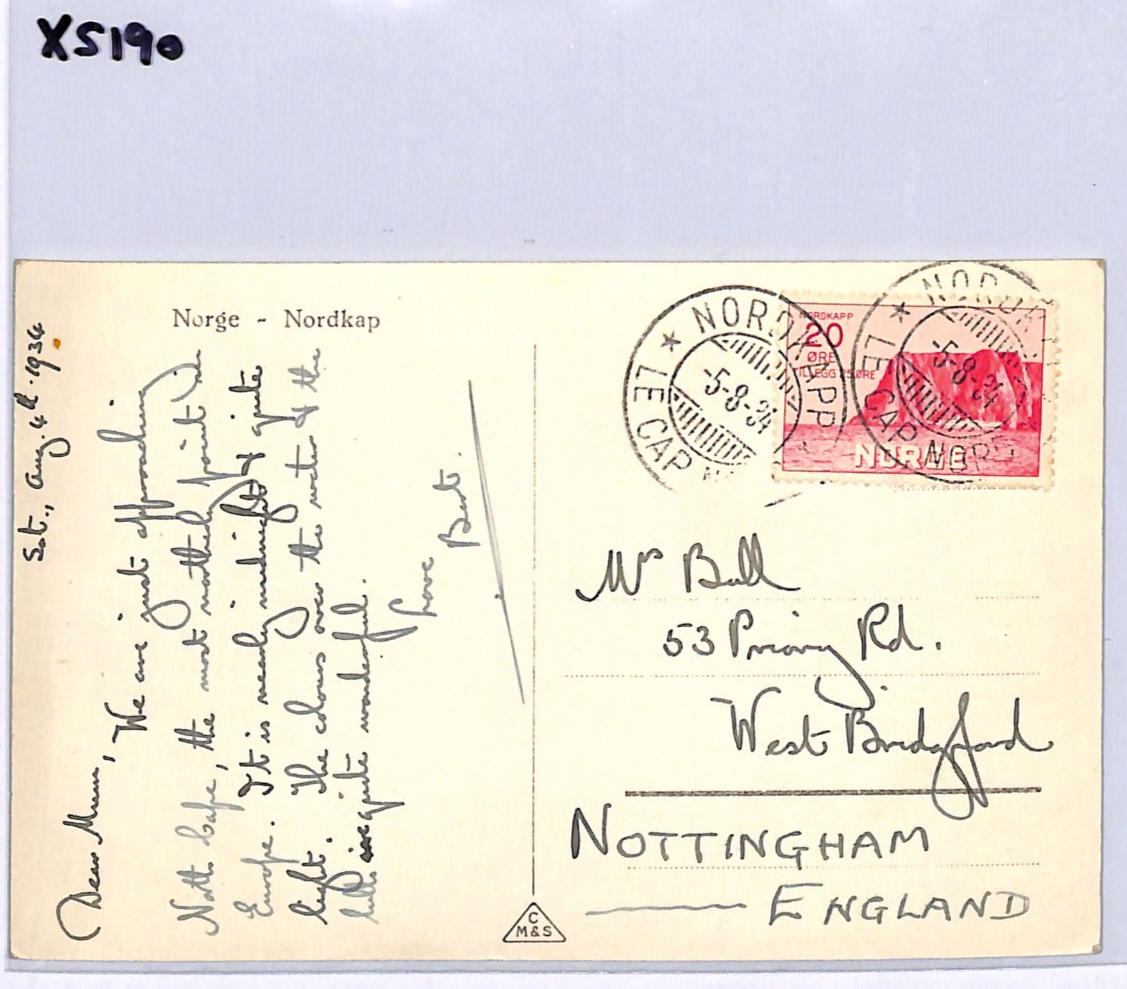 X5190
Norge - Nordkap
Sat., Aug. 4th. 1934
Dear Mum,
We are just approaching
North Cape, the most northerly point in
Europe. It is nearly midnight & quite
light. The colours over the water & the
hills are quite wonderful.
Love
Bert.
NORDKAPP
LE CAP NORD
-5-8-34
NORDKAPP
LE CAP NORD
-5-8-34
NORDKAPP
20
ØRE
TILLEGG 25 ØRE
NORGE
Mrs Ball
53 Priory Rd.
West Bridgford
NOTTINGHAM
ENGLAND
C
M&S